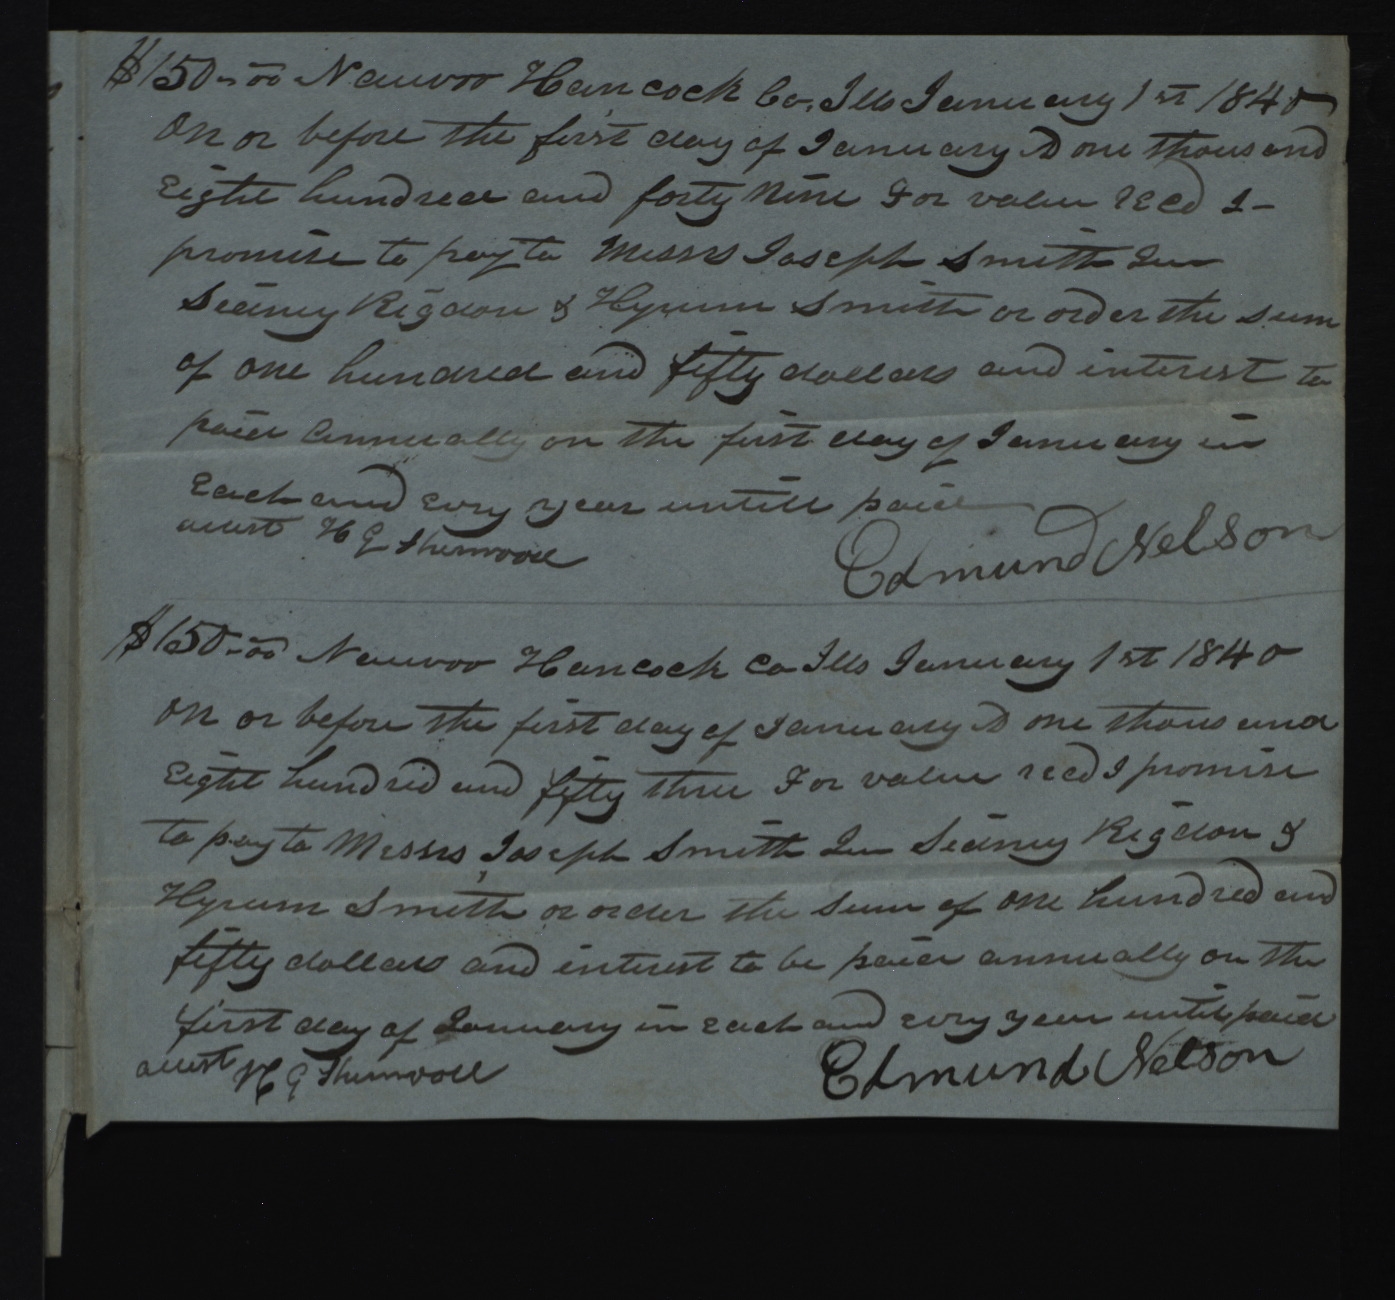 $150-00 Nauvoo Hancock Co. Ills January 1st 1840
On or before the first day of January AD one thousand
Eight hundred and forty Nine For value recd I-
promise to pay to Messrs Joseph Smith Jun
Sidney Rigdon & Hyrum Smith or order the sum
of one hundred and fifty dollars and interest to
paid annually on the first day of January in
Each and evry year untill paid
attest H G Sherwood
Edmund Nelson
$150-00 Nauvoo Hancock Co Ills January 1st 1840
On or before the first day of January AD one thousand
Eight hundrid and fifty three For value recd I promise
to pay to Messrs, Joseph Smith Jun Sidney Rigdon &
Hyrum Smith or order the sum of one hundrid and
fifty dollars and interest to be paid annually on the
first day of January in each and evry year until paid
attest H G Sherwood
Edmund Nelson